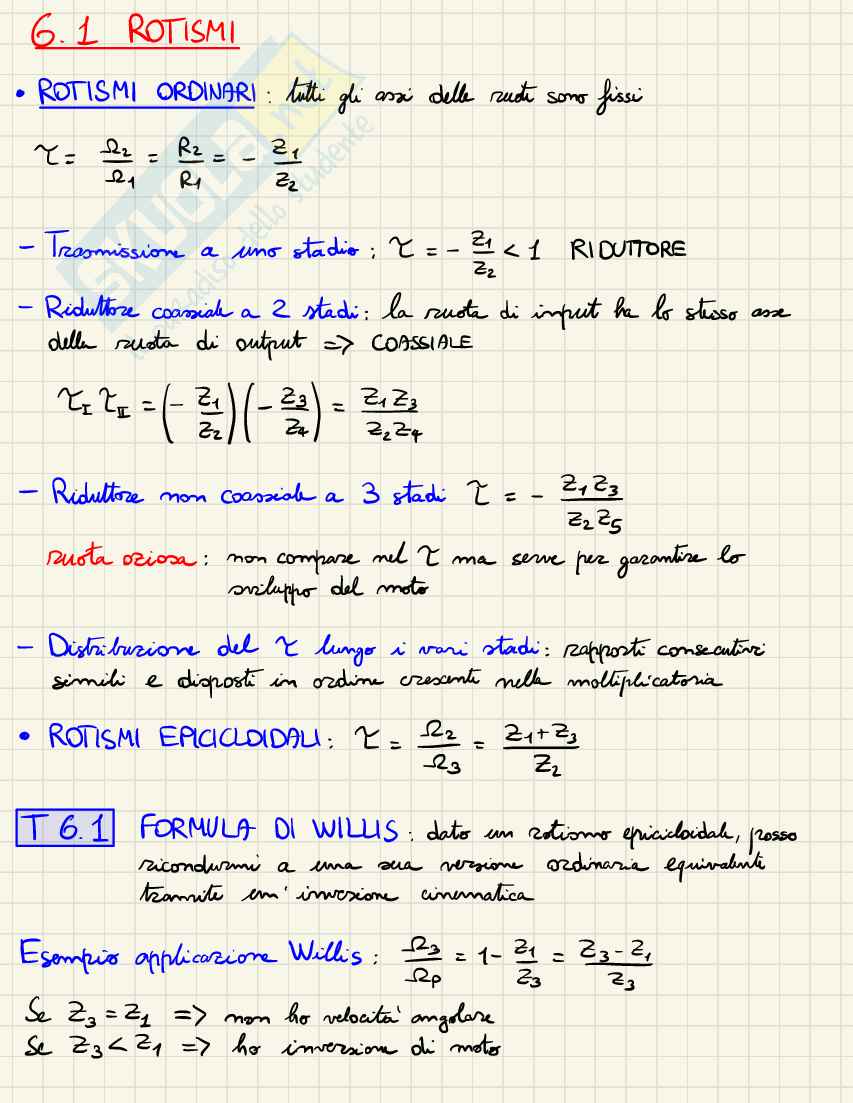 6.1 ROTISMI
• ROTISMI ORDINARI: tutti gli assi delle ruote sono fissi
τ = Ω2/Ω1 = R2/R1 = - Z1/Z2
- Trasmissione a uno stadio: τ = - Z1/Z2 < 1 RIDUTTORE
- Riduttore coassiale a 2 stadi: la ruota di input ha lo stesso asse
della ruota di output => COASSIALE
τI τII = (- Z1/Z2)(- Z3/Z4) = Z1 Z3/Z2 Z4
- Riduttore non coassiale a 3 stadi τ = - Z1 Z3/Z2 Z5
ruota oziosa: non compare nel τ ma serve per garantire lo
sviluppo del moto
- Distribuzione del τ lungo i vari stadi: rapporti consecutivi
simili e disposti in ordine crescente nella moltiplicatoria
• ROTISMI EPICICLOIDALI: τ = Ω2/Ω3 = Z1+Z3/Z2
T 6.1 FORMULA DI WILLIS: dato un rotismo epicicloidale, posso
ricondurmi a una sua versione ordinaria equivalente
tramite un' inversione cinematica
Esempio applicazione Willis: Ω3/Ωp = 1- Z1/Z3 = Z3-Z1/Z3
Se Z3 = Z1 => non ho velocità angolare
Se Z3 < Z1 => ho inversione di moto
SKUOLA.net
il paradiso dello studente